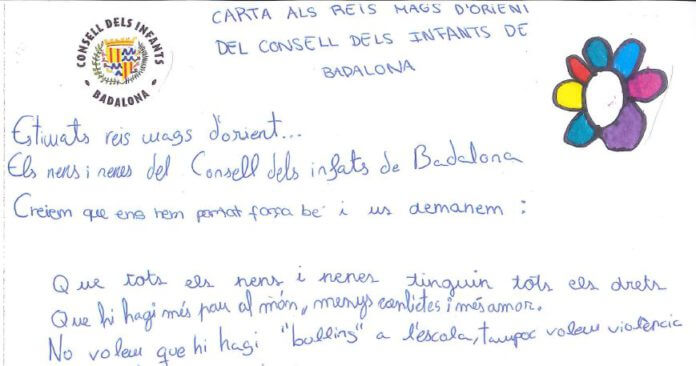 CONSELL DELS INFANTS
BADALONA
CARTA ALS REIS MAGS D'ORIENT
DEL CONSELL DELS INFANTS DE
BADALONA
Estimats reis mags d'orient...
Els nens i nenes del Consell dels infats de Badalona
Creiem que ens hem portat força bé i us demanem :
Que tots els nens i nenes tinguin tots els drets
Que hi hagi més pau al món, menys conlictes i més amor.
No volem que hi hagi "bulling" a l'escola, tampoc volem violència